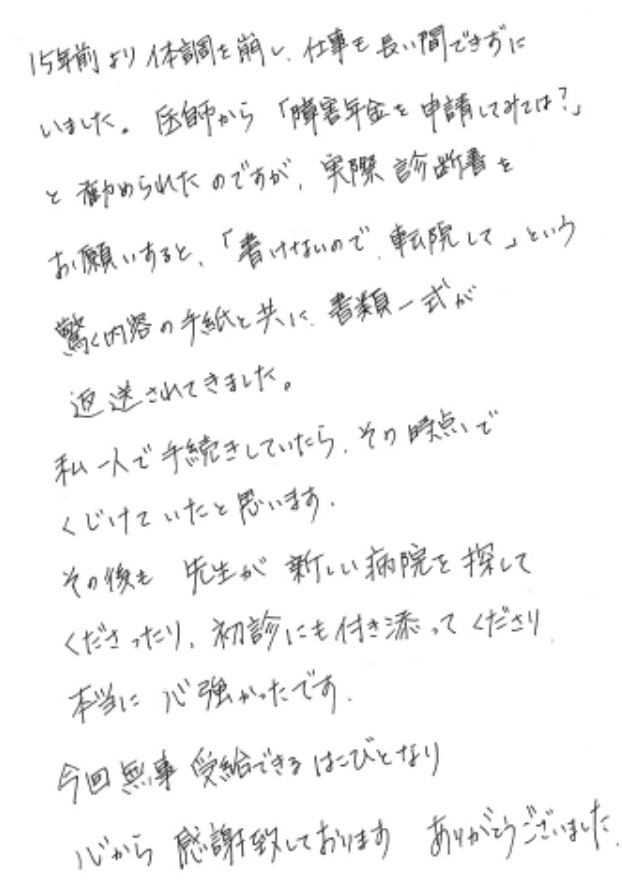 15年前より体調を崩し、仕事も長い間できずに
いました。医師から「障害年金を申請してみては?」
と勧められたのですが、実際診断書を
お願いすると、「書けないので、転院して」という
驚く内容の手紙と共に、書類一式が
返送されてきました。
私一人で手続きしていたら、その時点で
くじけていたと思います。
その後も 先生が 新しい病院を探して
くださったり、初診にも付き添ってくださり
本当に 心強かったです。
今回無事 受給できるはこびとなり
心から 感謝致しております ありがとうございました。